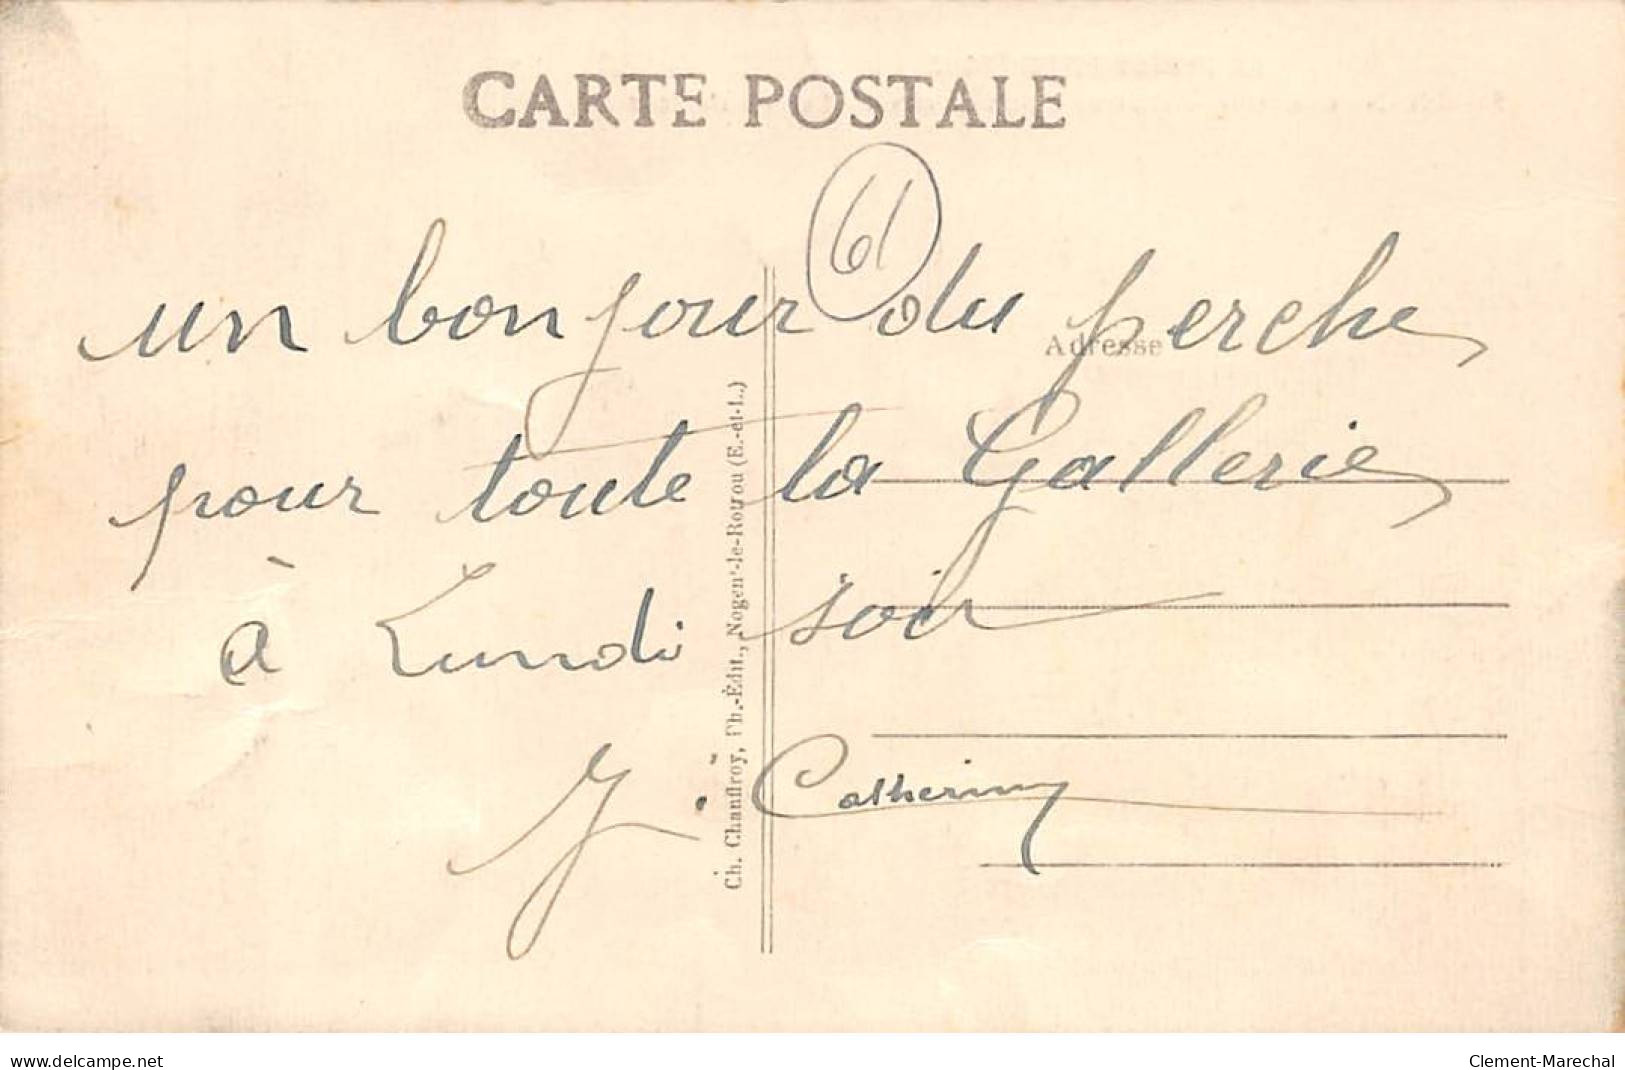 CARTE POSTALE
61
un bonjour du perche
Adresse
pour toute la Gallerie
à Lundi soir
J. Catherine
Ch. Chanfroy, Ph.-Édit., Nogent-le-Rotrou (E.-et-L.)
www.delcampe.net
Clement-Marechal